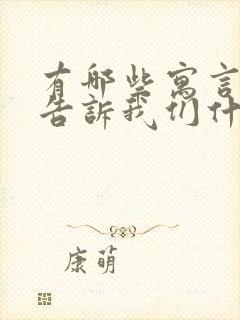 有哪些寓言
告訴我们什
康萌